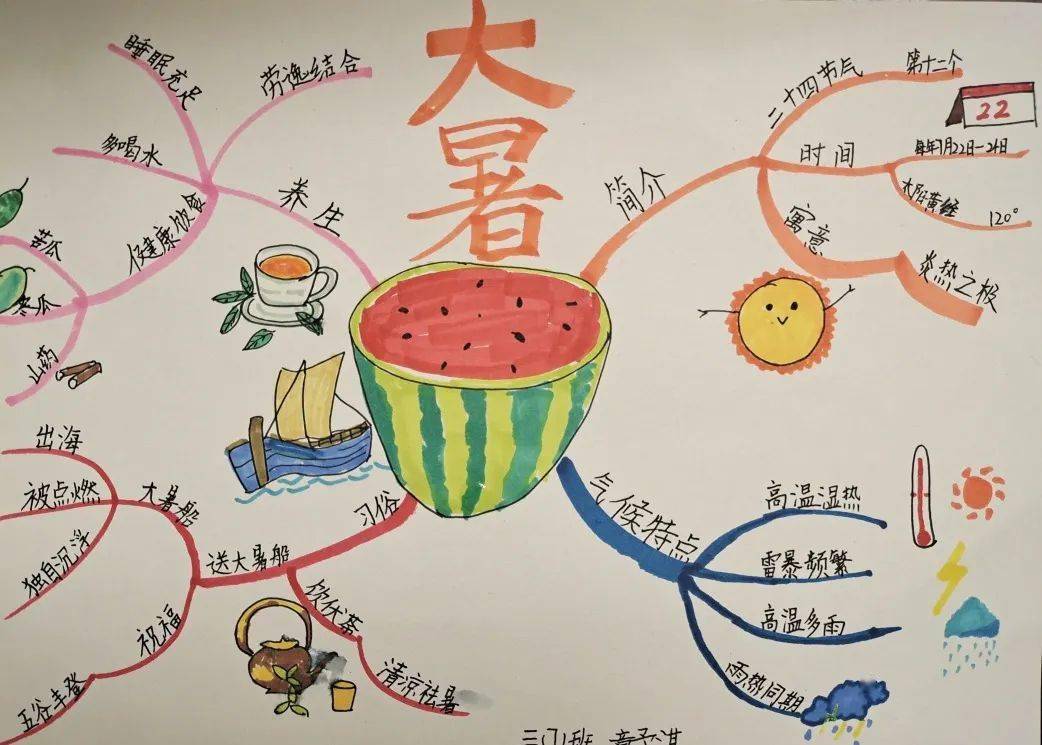 大暑
简介
二十四节气
第十二个
22
时间
每年7月22日-24日
太阳黄经
120°
寓意
炎热之极
养生
劳逸结合
睡眠充足
多喝水
健康饮食
苦瓜
冬瓜
山药
习俗
送大暑船
大暑船
出海
被点燃
独自沉浮
祝福
五谷丰登
饮伏茶
清凉祛暑
气候特点
高温湿热
雷暴频繁
高温多雨
雨热同期